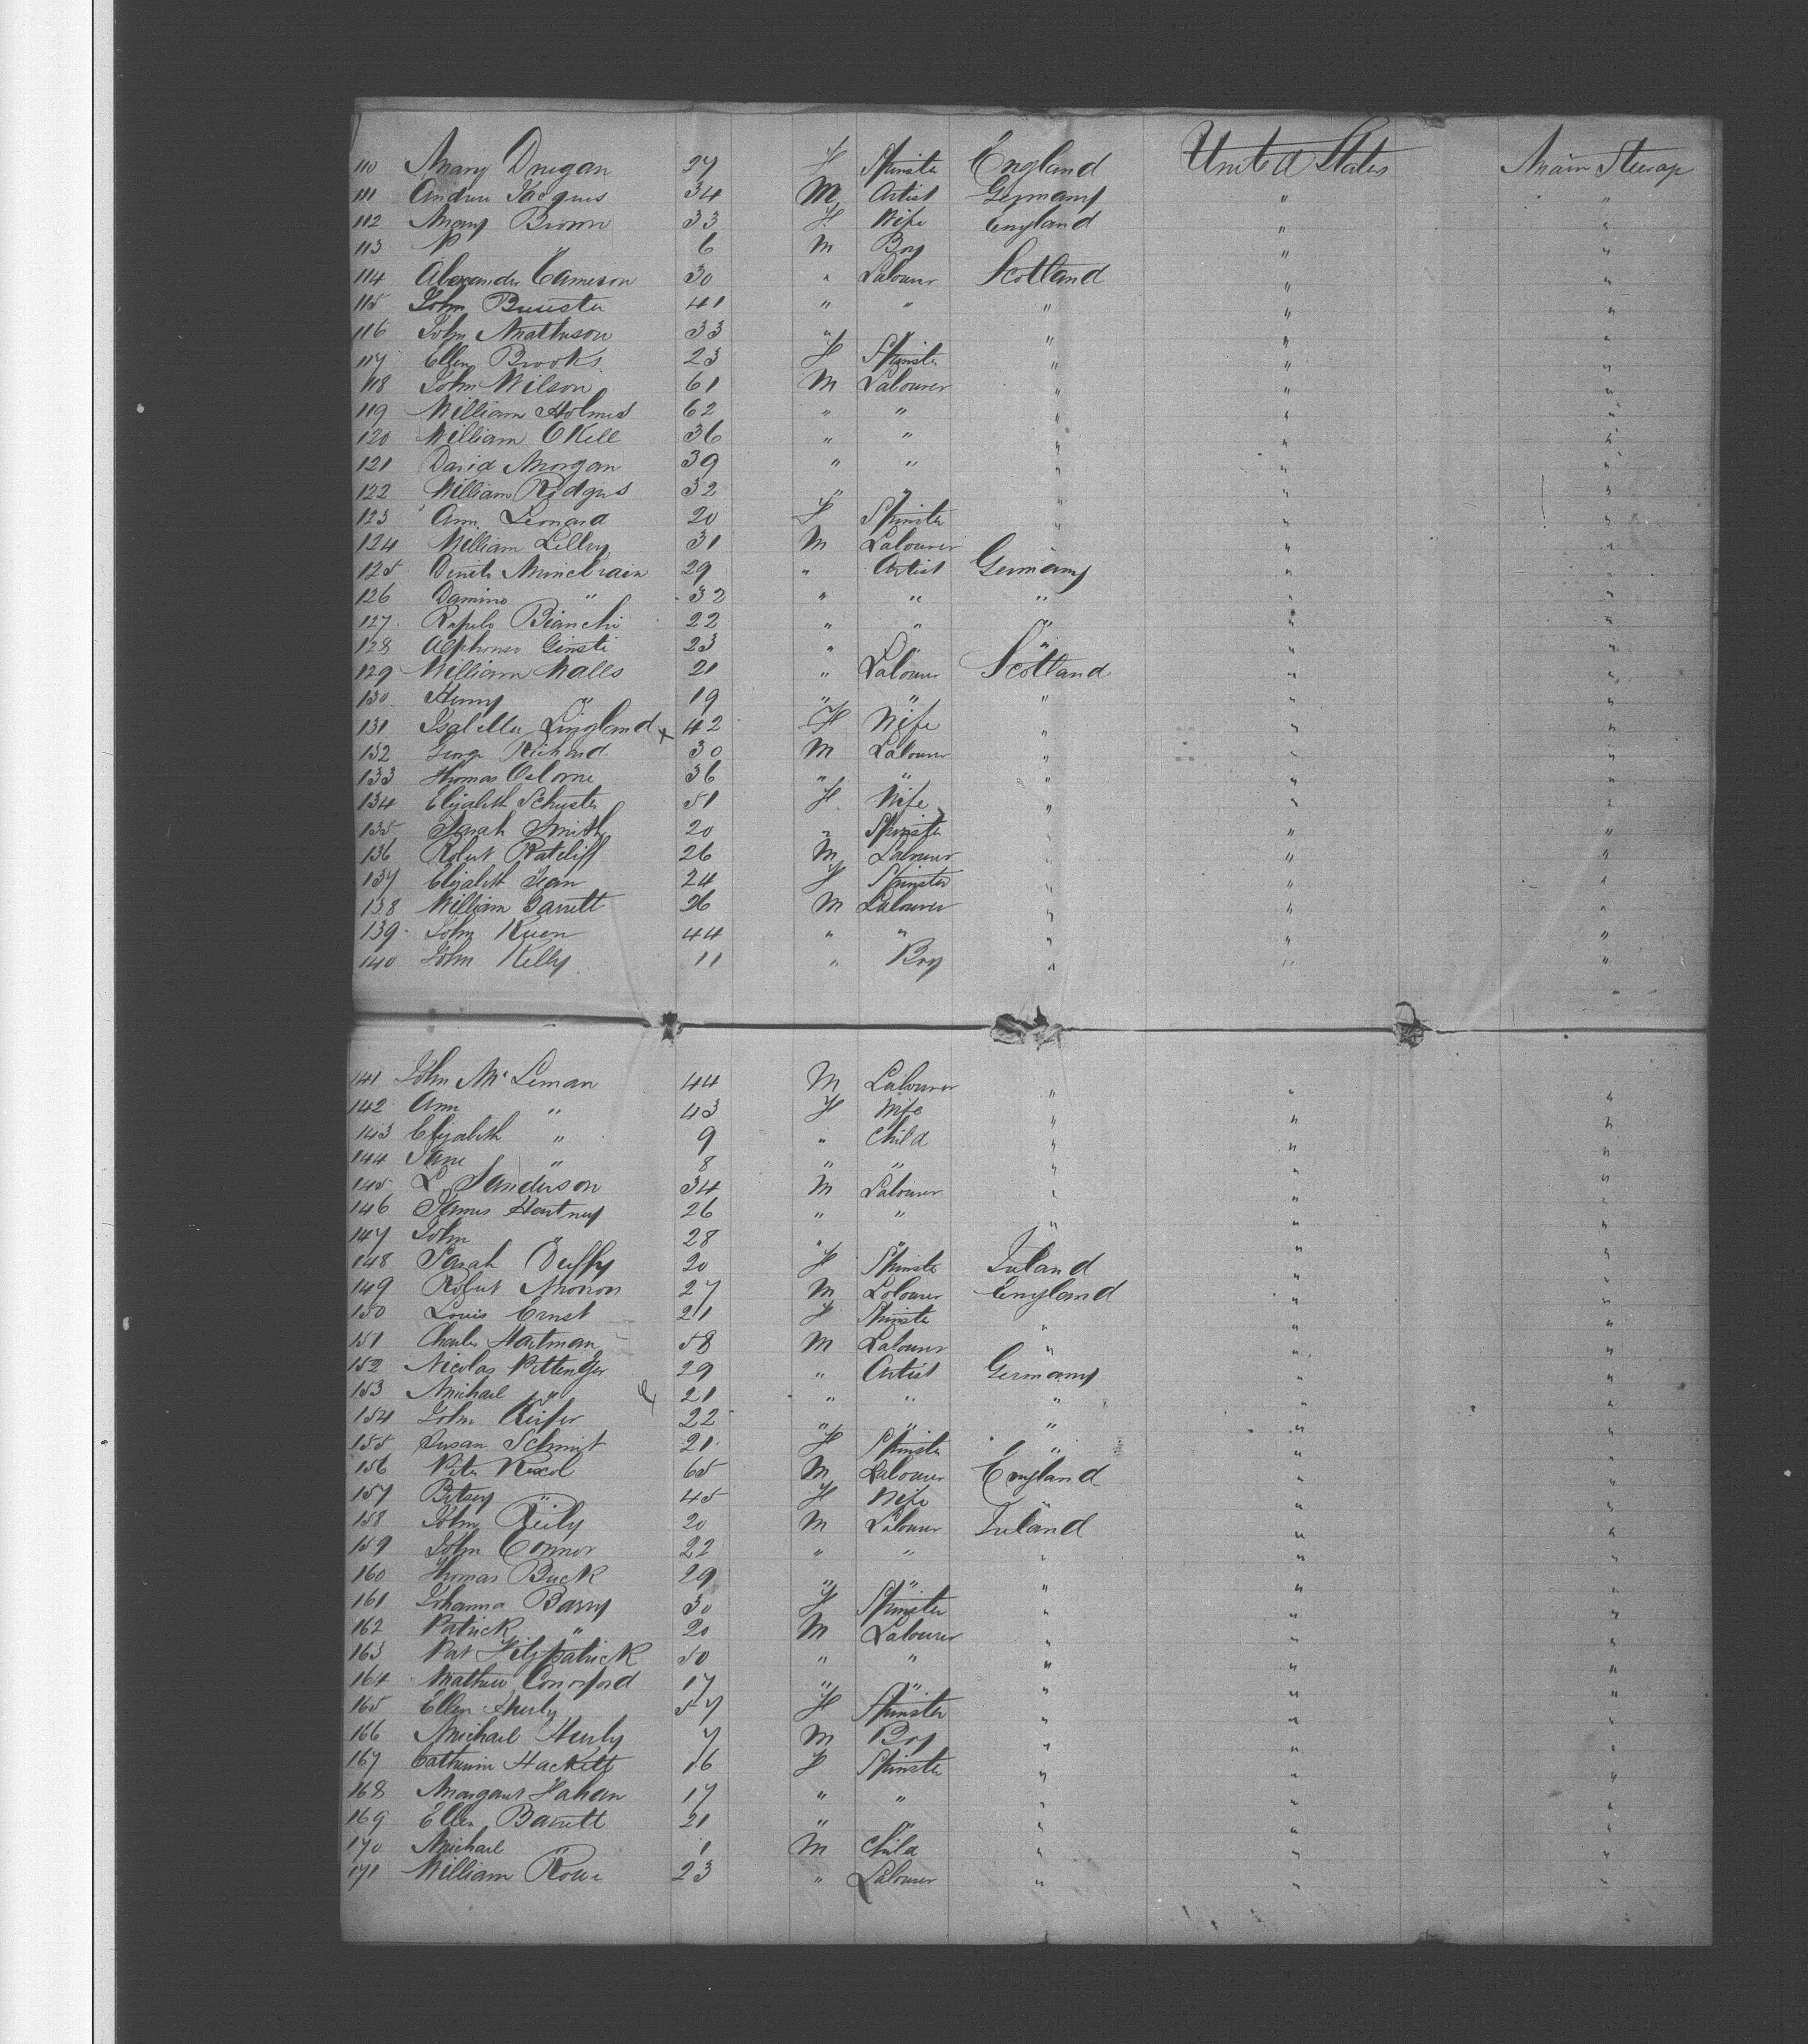 110 Mary Drugan 27 F Spinster England United States Main Steerage
111 Andrew Jacques 34 M Artist Germany " "
112 Mary Brown 33 F Wife England " "
113 " 6 M Boy " "
114 Alexander Cameron 30 " Labourer Scotland " "
115 John 41 " " " " "
116 John Mathuson 33 " " " " "
117 Ellen Brooks 23 F Spinster " " "
118 John Wilson 61 M Labourer " "
119 William Holmes 62 " " " " "
120 William OKell 36 " " " " "
121 David Morgan 39 " " " " "
122 William Rodgers 32 " " " " "
123 Ann Leonard 20 F Spinster " " "
124 William Lilley 31 M Labourer " "
125 29 " Artist Germany " "
126 Damino " 32 " " " " "
127 Bianchi 22 " " " " "
128 Alphonso Giusti 23 " " " " "
129 William Walls 21 " Labourer Scotland " "
130 Henry " 19 " " " " "
131 Isabella Lingland 42 F Wife " " "
132 George Richard 30 M Labourer " " "
133 Thomas Osborne 36 " " " " "
134 Elizabeth Schuster 51 F Wife " " "
135 Sarah Smith 20 " Spinster " " "
136 Robert Ratcliff 26 M Labourer " " "
137 Elizabeth Jean 24 F Spinster " " "
138 William Garrett 26 M Labourer " " "
139 John 44 " " " " "
140 John Kelly 11 " Boy " " "
141 John McLeman 44 M Labourer " " "
142 Ann " 43 F Wife " " "
143 Elizabeth " 9 " Child " " "
144 Jane " 8 " " " " "
145 L Sanderson 34 M Labourer " " "
146 James Hartney 26 " " " " "
147 John " 28 " " " "
148 Sarah Duffy 20 F Spinster Ireland " "
149 Robert 27 M Labourer England " "
150 Louis Ernst 21 F Spinster " " "
151 Charles Hartman 58 M Labourer " " "
152 Nicolas Pittenger 29 " Artist Germany " "
153 Michael " 21 " " " " "
154 John Keifer 22 " " " " "
155 Susan Schmit 21 F Spinster " " "
156 Peter 65 M Labourer England " "
157 Betsey " 45 F Wife " " "
158 John Reily 20 M Labourer Ireland " "
159 John Connor 22 " " " " "
160 Thomas Buck 29 " " " " "
161 Johanna Barry 30 F Spinster " " "
162 Patrick " 20 M Labourer " " "
163 Pat Fitzpatrick 50 " " " " "
164 Mathew 17 " " " " "
165 Ellen Hurly 57 F Spinster " " "
166 Michael Hurly 7 M Boy " " "
167 Catherine Hackett 16 F Spinster " " "
168 Margaret Hahan 17 " " " " "
169 Ellen Barrett 21 " " " " "
170 Michael " 1 M Child " " "
171 William Rowe 23 " Labourer " " "